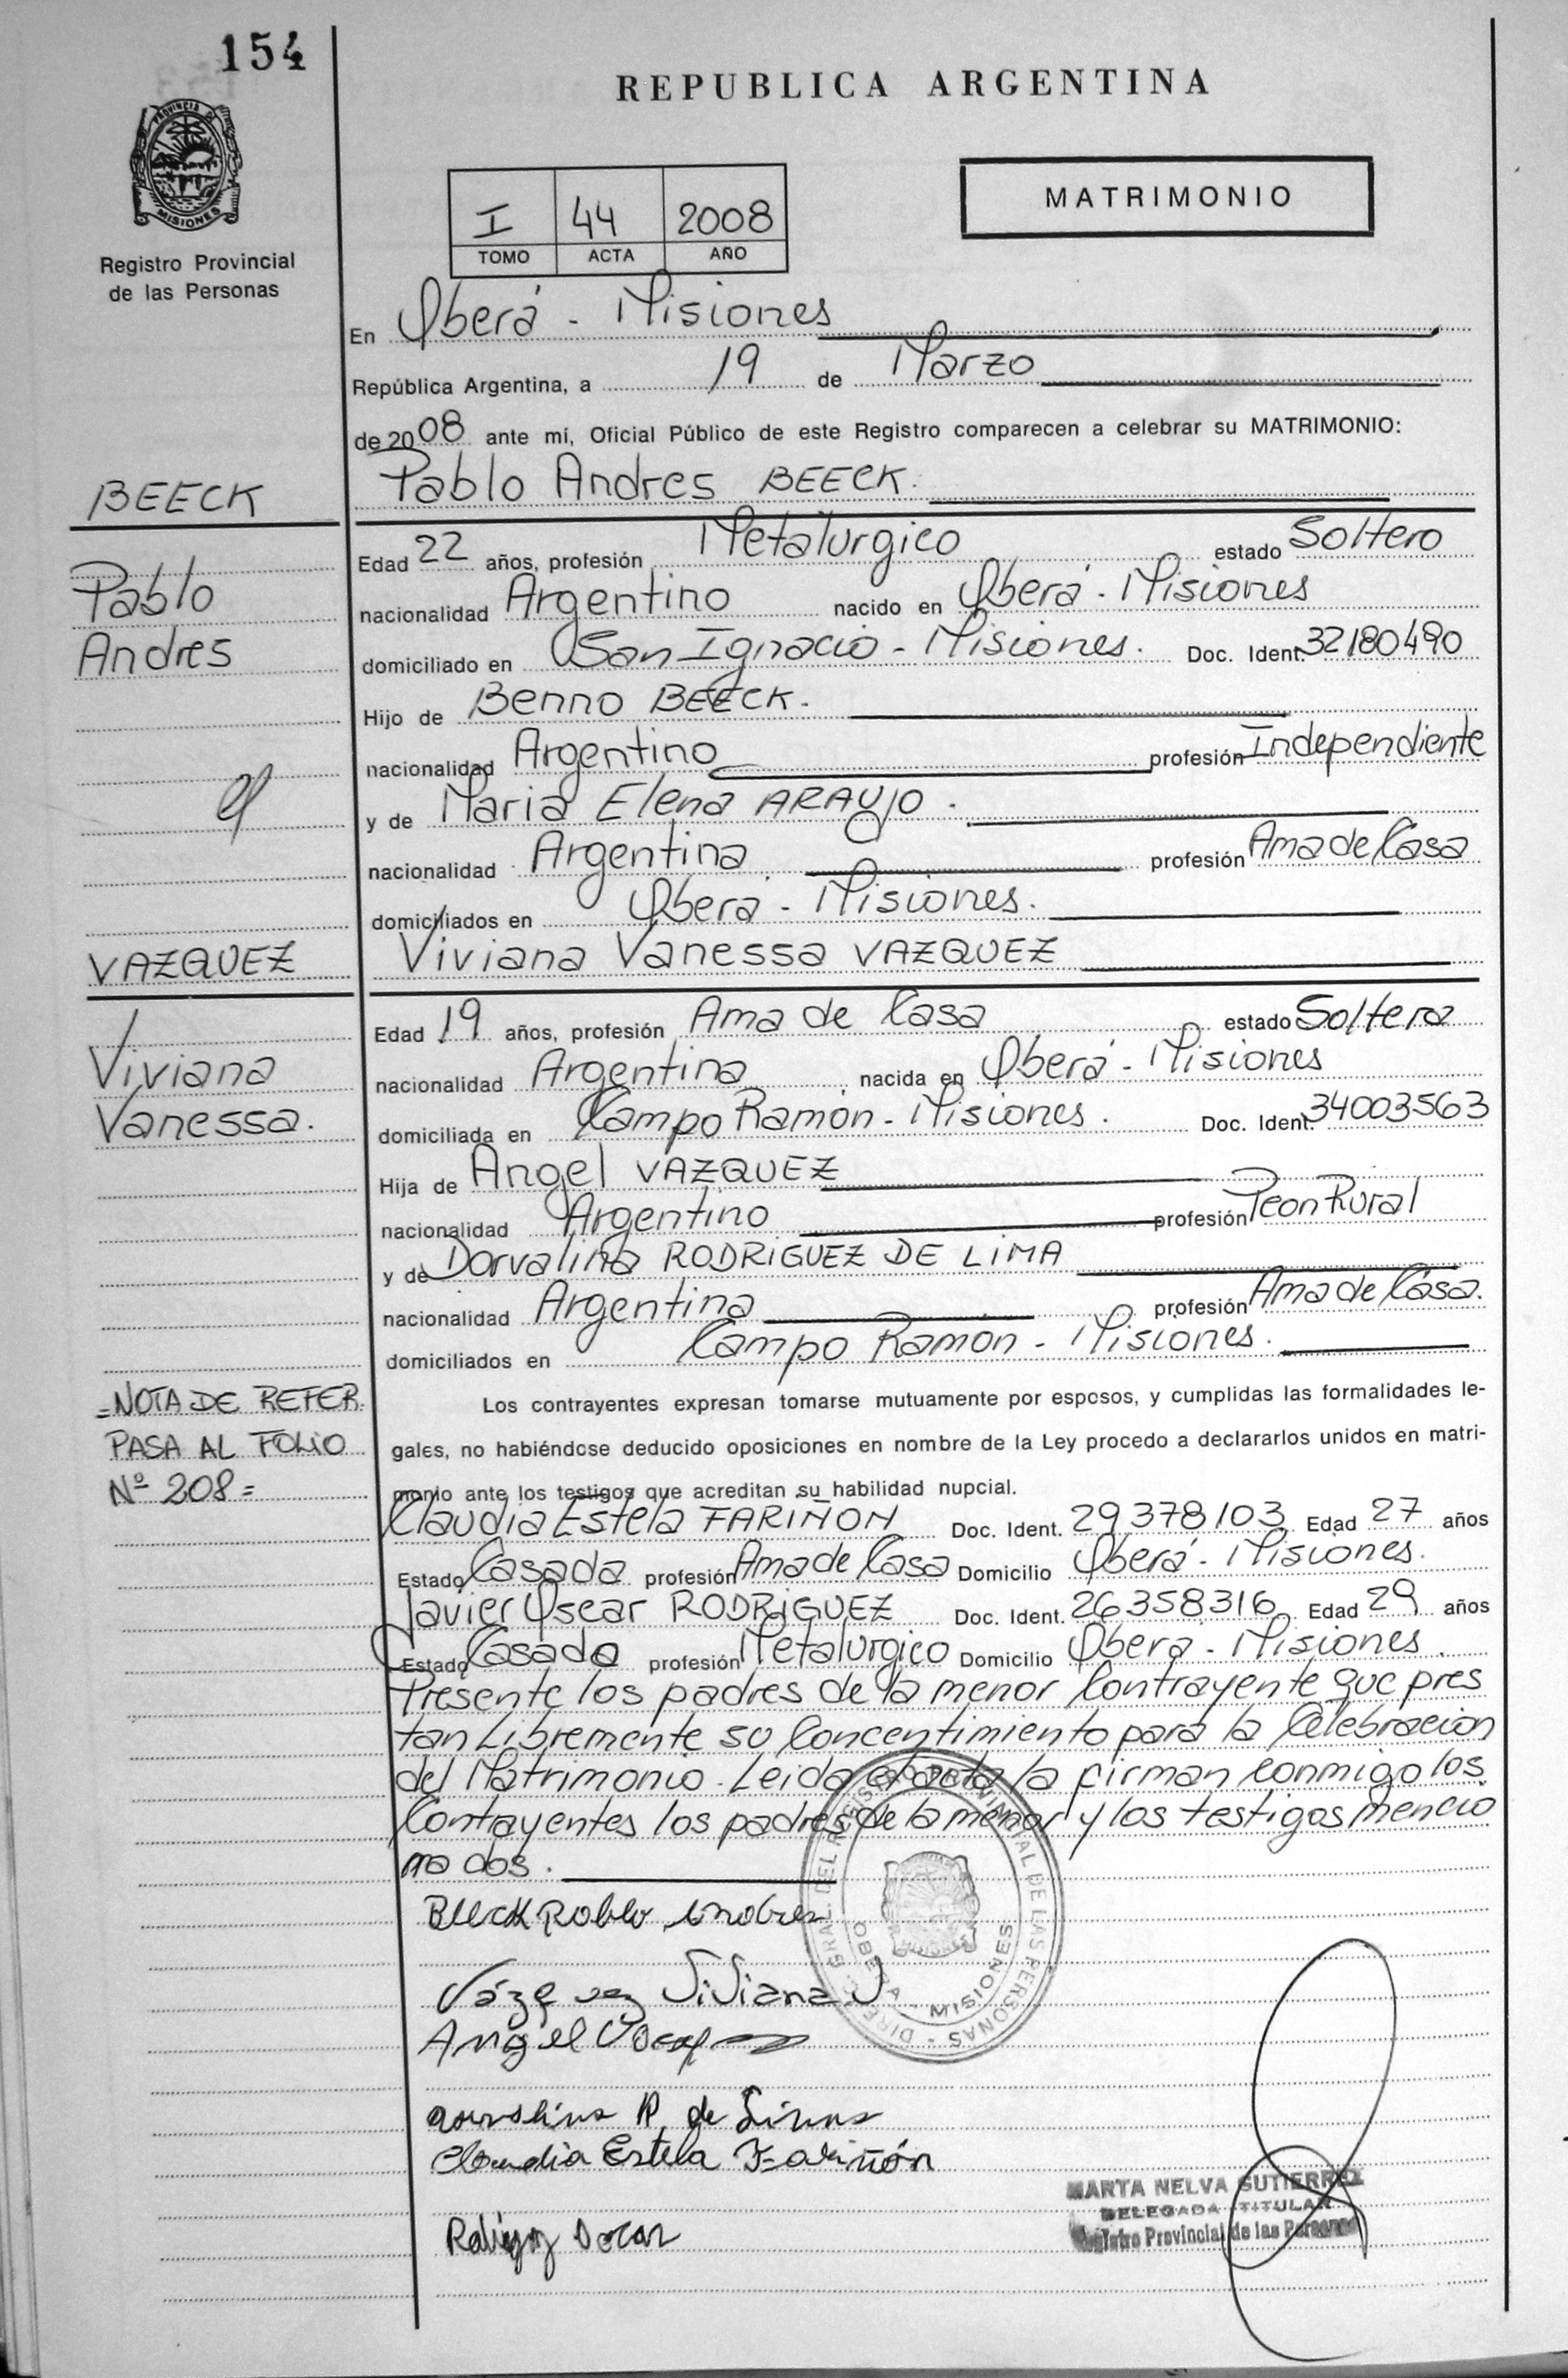 154
REPUBLICA ARGENTINA
PROVINCIA DE MISIONES
MATRIMONIO
I 44 2008
TOMO ACTA AÑO
Registro Provincial
de las Personas
En Oberá - Misiones
República Argentina, a 19 de Marzo
de 2008 ante mí, Oficial Público de este Registro comparecen a celebrar su MATRIMONIO:
BEECK
Pablo Andres BEECK.
Edad 22 años, profesión Metalurgico estado Soltero
Pablo
nacionalidad Argentino nacido en Oberá - Misiones
Andres
domiciliado en San Ignacio - Misiones. Doc. Ident. 32180490
Hijo de Benno BEECK.
nacionalidad Argentino profesión Independiente
y
y de Maria Elena ARAUJO.
nacionalidad Argentina profesión Ama de Casa
domiciliados en Oberá - Misiones.
VAZQUEZ
Viviana Vanessa VAZQUEZ
Edad 19 años, profesión Ama de Casa estado Soltera
Viviana
nacionalidad Argentina nacida en Oberá - Misiones
Vanessa.
domiciliada en Campo Ramón - Misiones. Doc. Ident. 34003563
Hija de Angel VAZQUEZ
nacionalidad Argentino profesión Peon Rural
y de Dorvalina RODRIGUEZ DE LIMA
nacionalidad Argentina profesión Ama de Casa.
domiciliados en Campo Ramón - Misiones.
=NOTA DE REFER.
PASA AL FOLIO
Nº 208=
Los contrayentes expresan tomarse mutuamente por esposos, y cumplidas las formalidades le-
gales, no habiéndose deducido oposiciones en nombre de la Ley procedo a declararlos unidos en matri-
monio ante los testigos que acreditan su habilidad nupcial.
Claudia Estela FARIÑON Doc. Ident. 29378103 Edad 27 años
Estado Casada profesión Ama de Casa Domicilio Oberá - Misiones.
Javier Oscar RODRIGUEZ Doc. Ident. 26358316 Edad 29 años
Estado Casado profesión Metalurgico Domicilio Oberá - Misiones.
Presente los padres de la menor Contrayente que pres
tan Libremente su Concentimiento para la Celebracion
del Matrimonio. Leida el acta la firman conmigo los
Contrayentes los padres de la menor y los testigos mencio
nados.
DIREC. GRAL. DEL REGISTRO PROVINCIAL DE LAS PERSONAS
OBERA - MISIONES
Beeck Pablo Andres
Vázquez Viviana V
Angel Vazquez
Dorvalina R. de Lima
Claudia Estela Fariñón
MARTA NELVA GUTIERREZ
DELEGADA TITULAR
Registro Provincial de las Personas